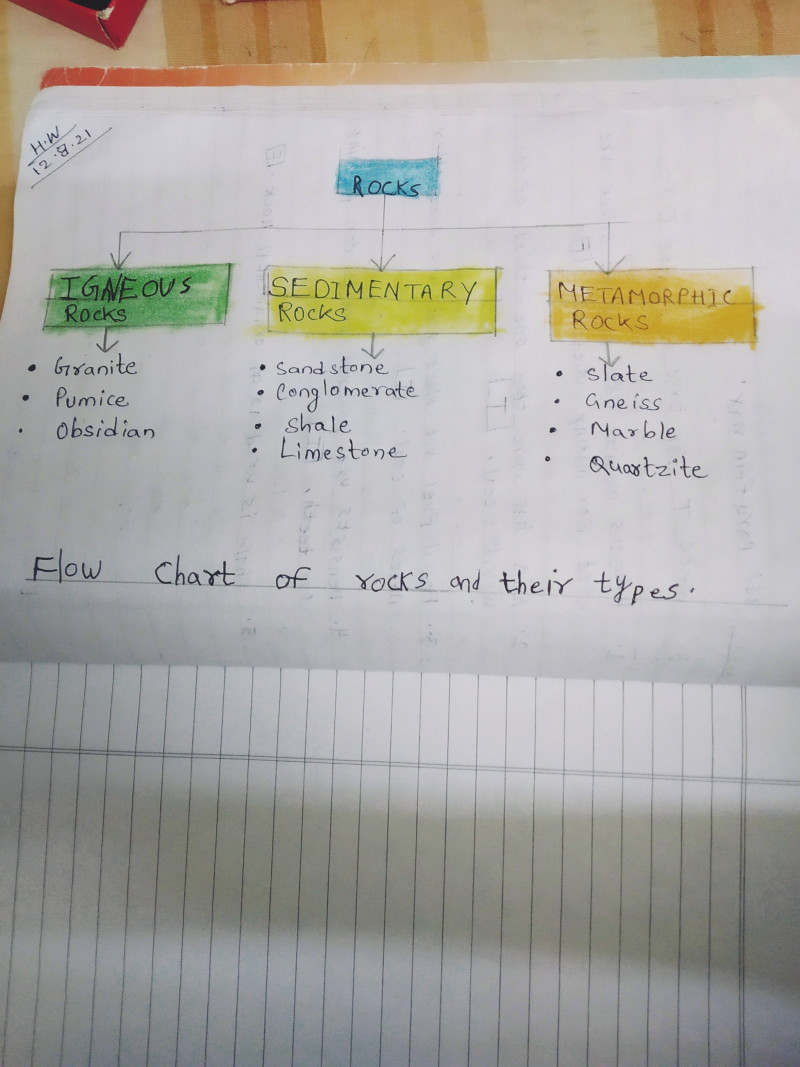 H.W
12.8.21
ROCKS
IGNEOUS
ROCKS
• Granite
• Pumice
• Obsidian
SEDIMENTARY
ROCKS
• Sandstone
• Conglomerate
• Shale
• Limestone
METAMORPHIC
ROCKS
• Slate
• Gneiss
• Marble
• Quartzite
Flow Chart of rocks and their types.